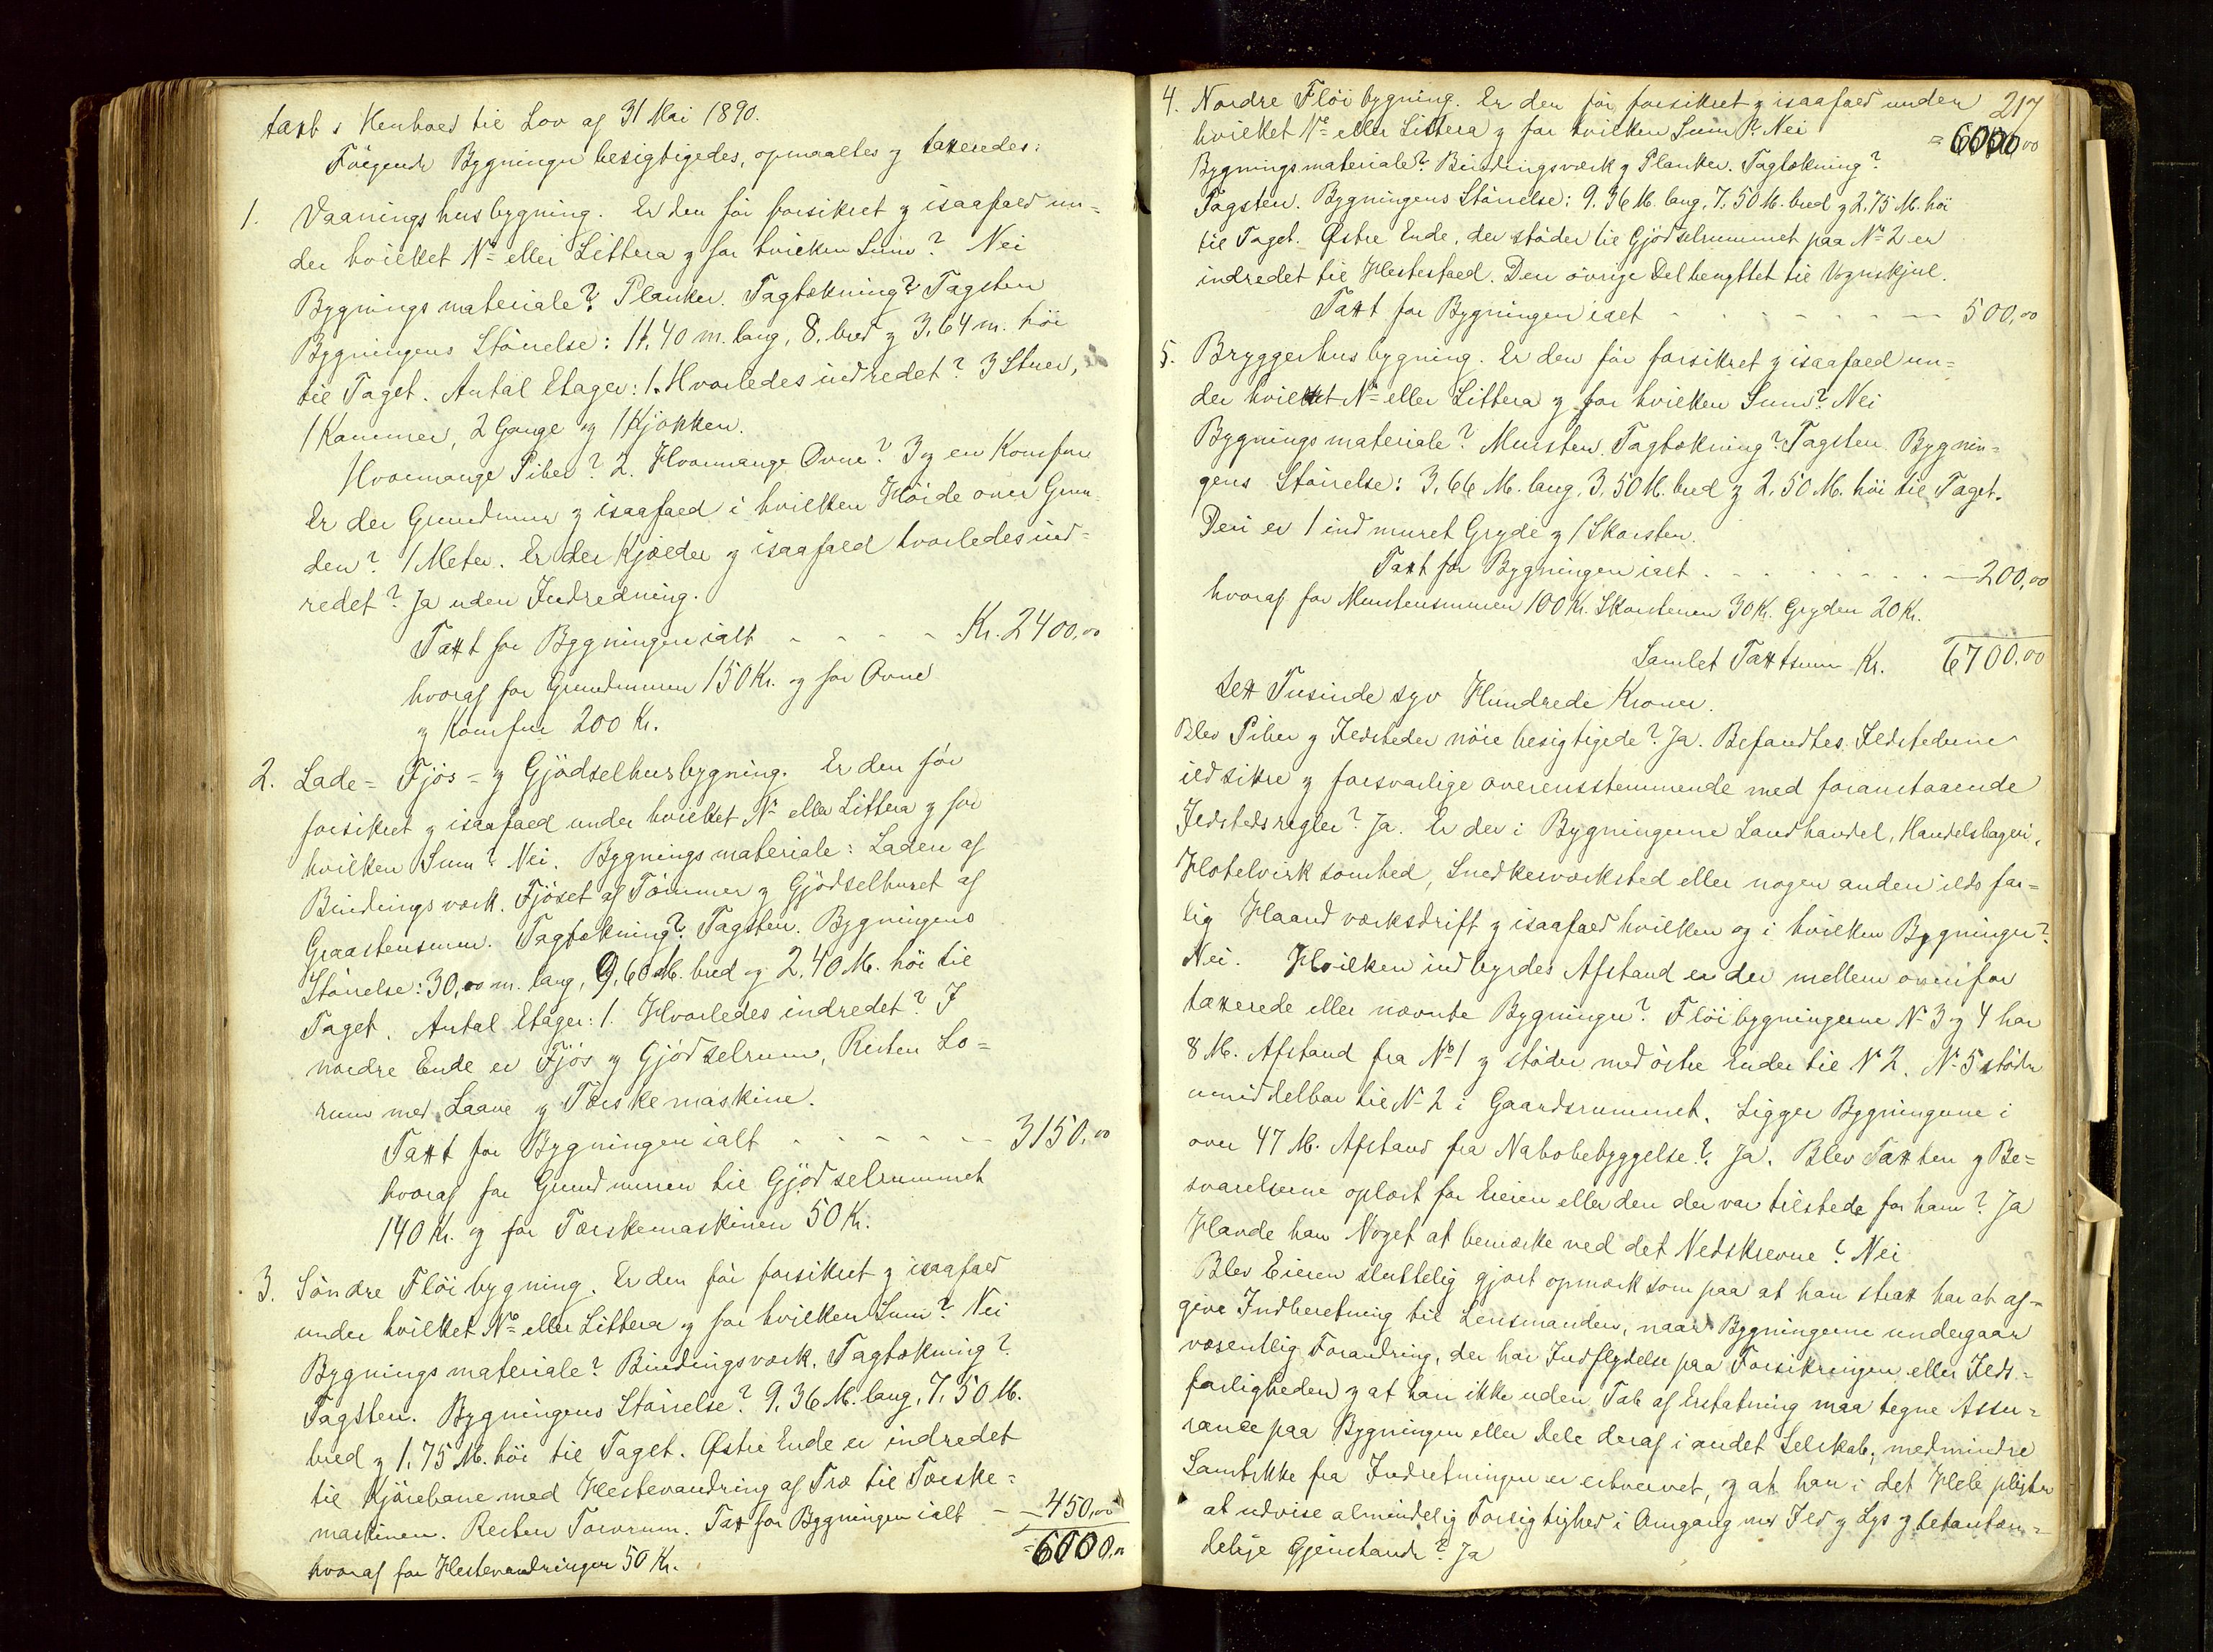 taxt i Henhold til Lov af 31 Mai 1890.
Følgende Bygninger besigtigedes, opmaaltes og taxeredes:
1. Vaaningshusbygning. Er den før forsikret og isaafald un=
der hvilket No eller Littera og for hvilken Sum? Nei
Bygningsmateriale? Planker. Tagtækning? Tagsten
Bygningens Størrelse: 11,40 m. lang, 8. bred og 3,64 m. høi
til Taget. Antal Etager: 1. Hvorledes indredet? 3 Stuer,
1 Kammer, 2 Gange og 1 Kjøkken.
Hvormange Piber? 2. Hvormange Ovne? 3 og en Komfur
Er der Grundmur og isaafald i hvilken Høide over Grun=
den? 1 Meter. Er der Kjælder og isaafald hvorledes ind=
redet? Ja uden Indredning.
Taxt for Bygningen ialt - - - - Kr. 2400,00
hvoraf for Grundmuren 150 Kr. og for Ovne
og Komfur 200 Kr.
2. Lade= Fjøs= og Gjødselhusbygning. Er den før
forsikret og isaafald under hvilket No eller Littera og for
hvilken Sum? Nei. Bygningsmateriale: Laden af
Bindingsværk. Fjøset af Tømmer og Gjødselhuset af
Graastensmur. Tagtækning? Tagsten. Bygningens
Størrelse: 30,00 m. lang, 9,60 M. bred og 2,40 M. høi til
Taget. Antal Etager: 1. Hvorledes indredet? I
nordre Ende er Fjøs og Gjødselrum, Resten Lo=
rum med Laave og Tærskemaskine.
Taxt for Bygningen ialt - - - - - - 3150,00
hvoraf for Grundmuren til Gjødselrummet
140 Kr. og for Tærskemaskinen 50 Kr.
3. Søndre Fløibygning. Er den før forsikret og isaafald
under hvilket No eller Littera og for hvilken Sum? Nei
Bygningsmateriale? Bindingsværk. Tagtækning?
Tagsten. Bygningens Størrelse? 9,36 M. lang, 7,50 M.
bred og 1,75 M. høi til Taget. Østre Ende er indredet
til Kjørebane med Hestevandring af Træ til Tærske=
maskinen. Resten Torvrum. Taxt for Bygningen ialt - - 450,00
hvoraf for Hestevandringen 50 Kr. = 6000,00
217
4. Nordre Fløibygning. Er den før forsikret og isaafald under
hvilket No eller Littera og for hvilken Sum? Nei = 6000,00
Bygningsmateriale? Bindingsværk og Planker. Tagtækning?
Tagsten. Bygningens Størrelse: 9,36 M. lang, 7,50 M. bred og 2,75 M. høi
til Taget. Østre Ende, der støder til Gjødselrummet paa No 2 er
indredet til Hestestald. Den øvrige Del benyttet til Vognskjul.
Taxt for Bygningen ialt - - - - - - - 500,00
5. Bryggerhusbygning. Er den før forsikret og isaafald un=
der hvilket No eller Littera og for hvilken Sum? Nei
Bygningsmateriale? Mursten. Tagtækning? Tagsten. Bygnin=
gens Størrelse: 3,66 M. lang, 3,50 M. bred og 2,50 M. høi til Taget.
Deri er 1 indmuret Gryde og 1 Skorsten.
Taxt for Bygningen ialt - - - - - - - 200,00
hvoraf for Murstensmuren 100 Kr. Skorstenen 30 Kr. Gryden 20 Kr.
Samlet Taxtsum Kr. 6700,00
Sex Tusinde syv Hundrede Kroner.
Blev Piber og Ildsteder nøie besigtigede? Ja. Befandtes Ildstederne
ildsikre og forsvarlige overensstemmende med foranstaaende
Ildstedsregler? Ja. Er der i Bygningerne Landhandel, Handelsbageri,
Hotelvirksomhed, Snedkerværksted eller nogen anden ildsfar=
lig Haandværksdrift og isaafald hvilken og i hvilken Bygninger?
Nei. Hvilken indbyrdes Afstand er der mellem ovenfor
taxerede eller nævnte Bygninger? Fløibygningerne No 3 og 4 har
8 M. Afstand fra No 1 og støder med østre Ender til No 2. No 5 støder
umiddelbar til No 2 i Gaardsrummet. Ligger Bygningerne i
over 47 M. Afstand fra Nabobebyggelse? Ja. Blev Taxten og Be=
svarelserne oplæst for Eieren eller den der var tilstede for ham? Ja
Havde han Noget at bemærke ved det Nedskrevne? Nei
Blev Eieren sluttelig gjort opmærksom paa at han strax har at af=
give Indberetning til Lensmanden, naar Bygningerne undergaar
væsentlig Forandring, der har Indflydelse paa Forsikringen eller Ilds=
farligheden og at han ikke uden Tab af Erstatning maa tegne Assu=
rance paa Bygningen eller Dele deraf i andet Selskab, medmindre
Samtykke fra Indretningen er erhvervet, og at han i det Hele pligter
at udvise almindelig Forsigtighed i Omgang med Ild og Lys og letantæn=
delige Gjenstande? Ja